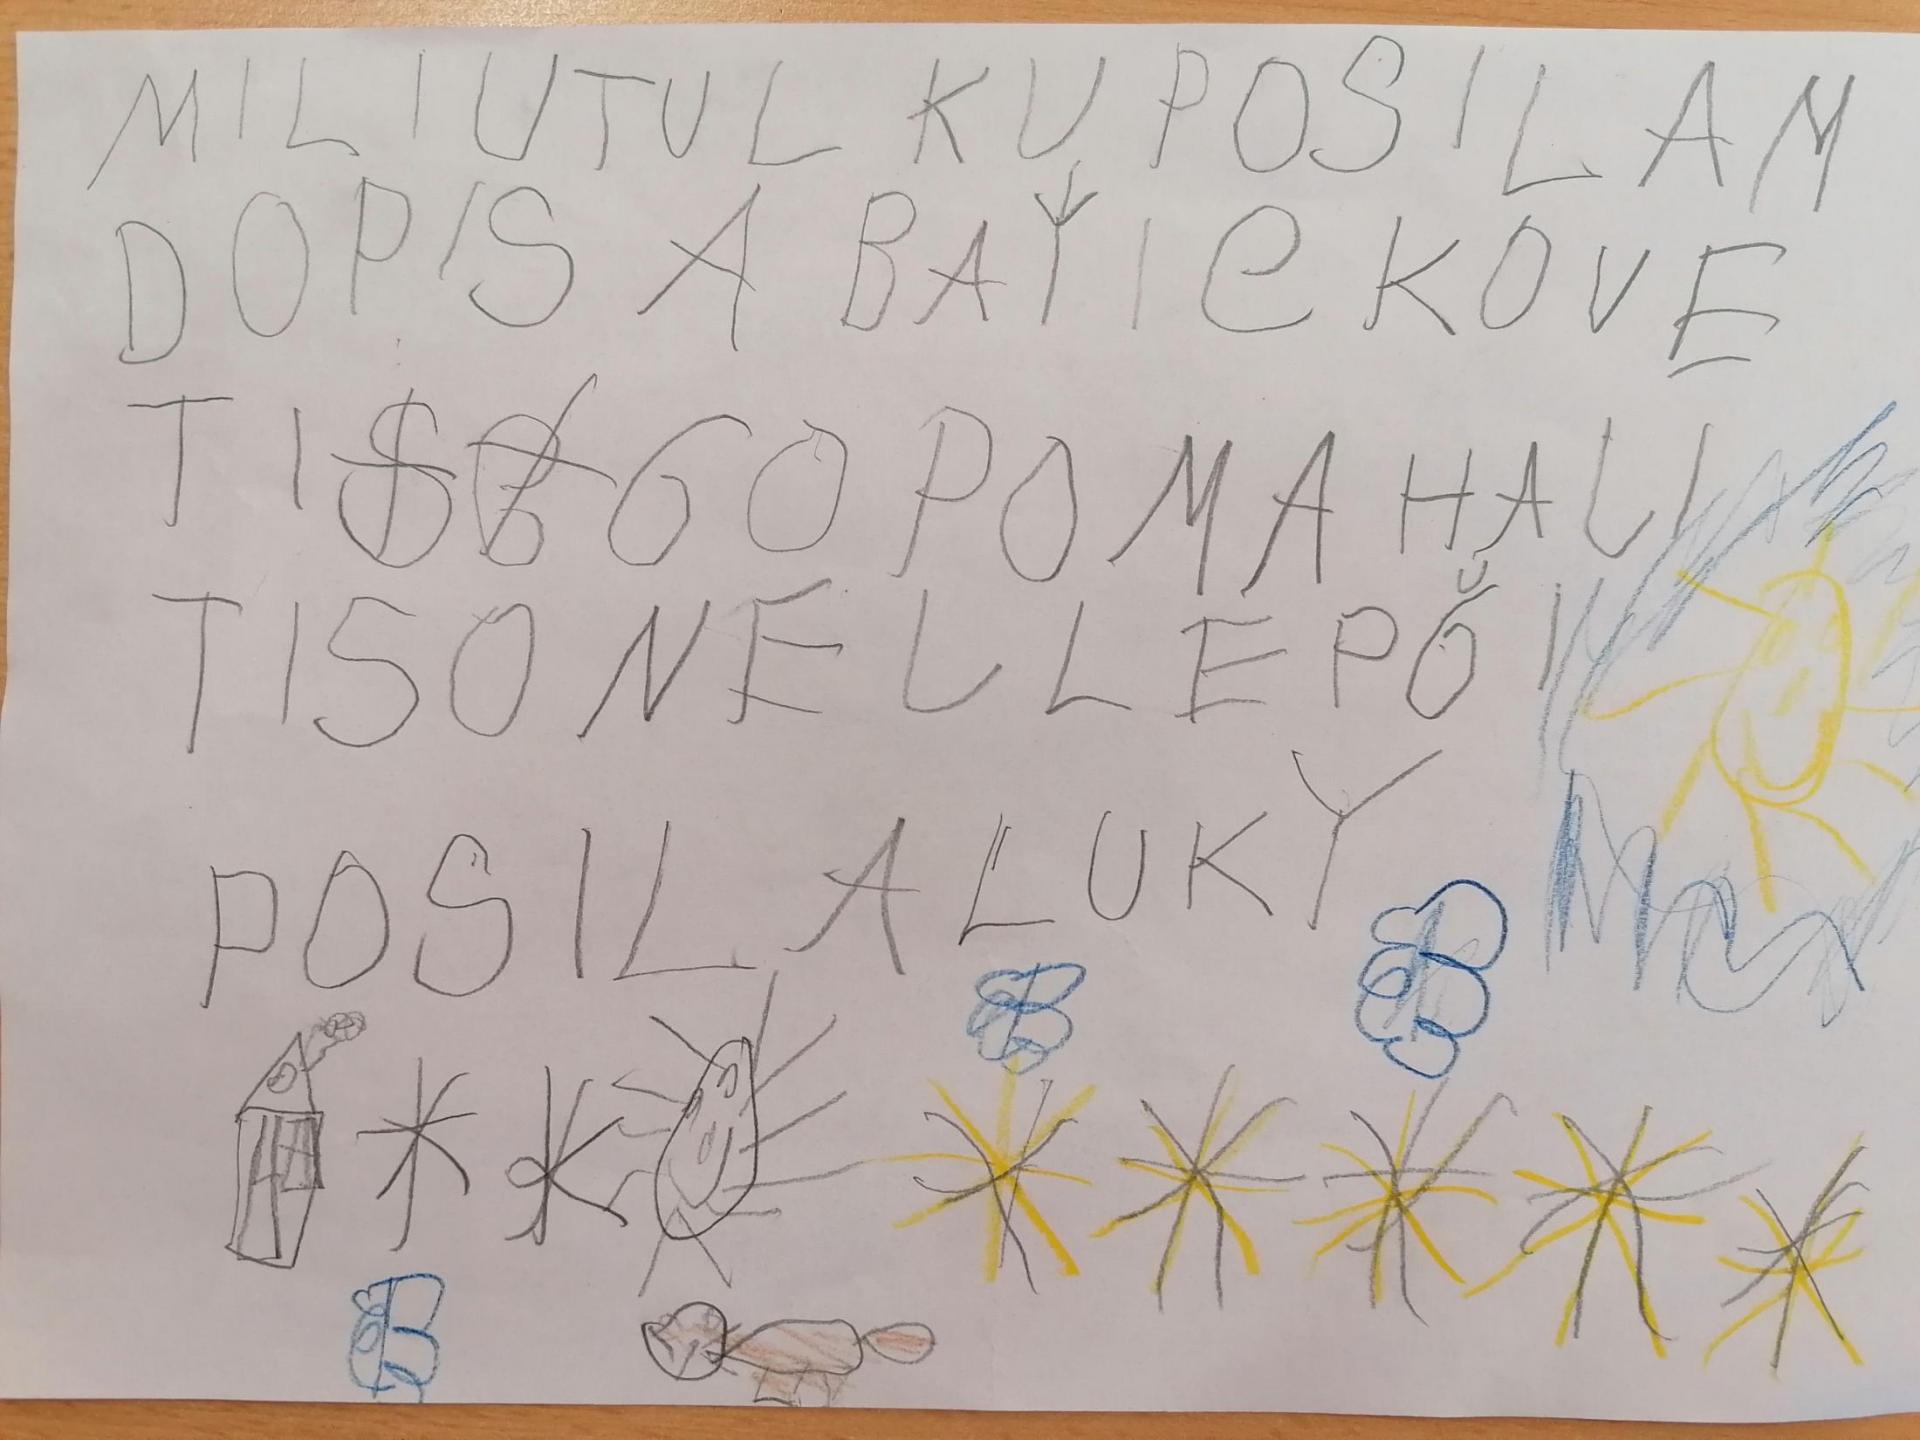 MILIUTUL KU POSILAM
DOPIS A BAŤIČKOVE
TI GO POMAHALI
TISONELLEPŠI
POSILA LUKY